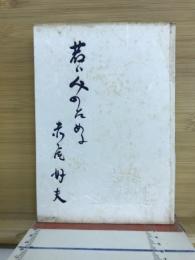 若い人のために
赤尾好夫